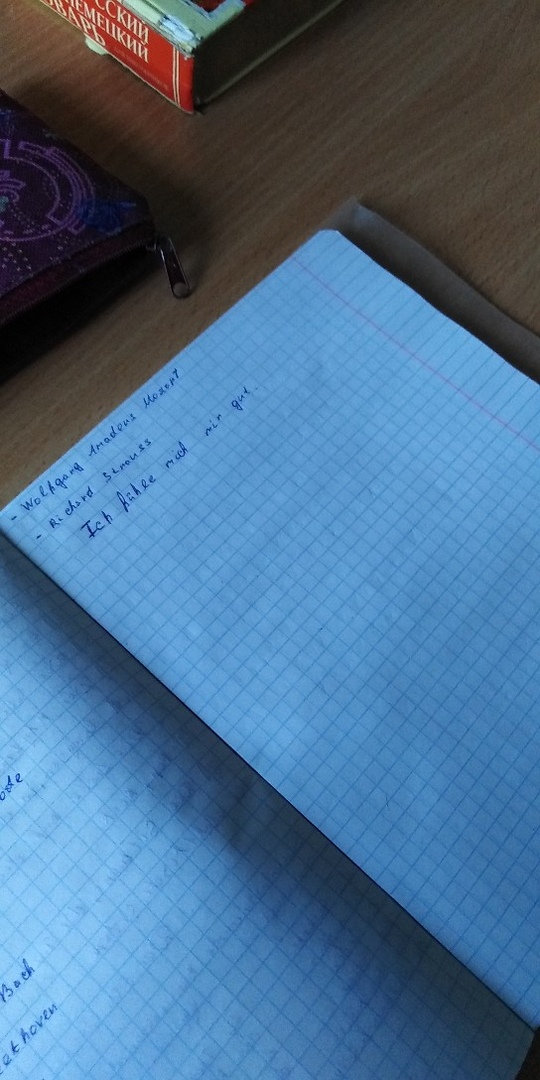 РУССКИЙ
НЕМЕЦКИЙ
СЛОВАРЬ
- Wolfgang Amadeus Mozart
- Richard Strauss
Ich fühle mich nin gut.
Bach
Beethoven